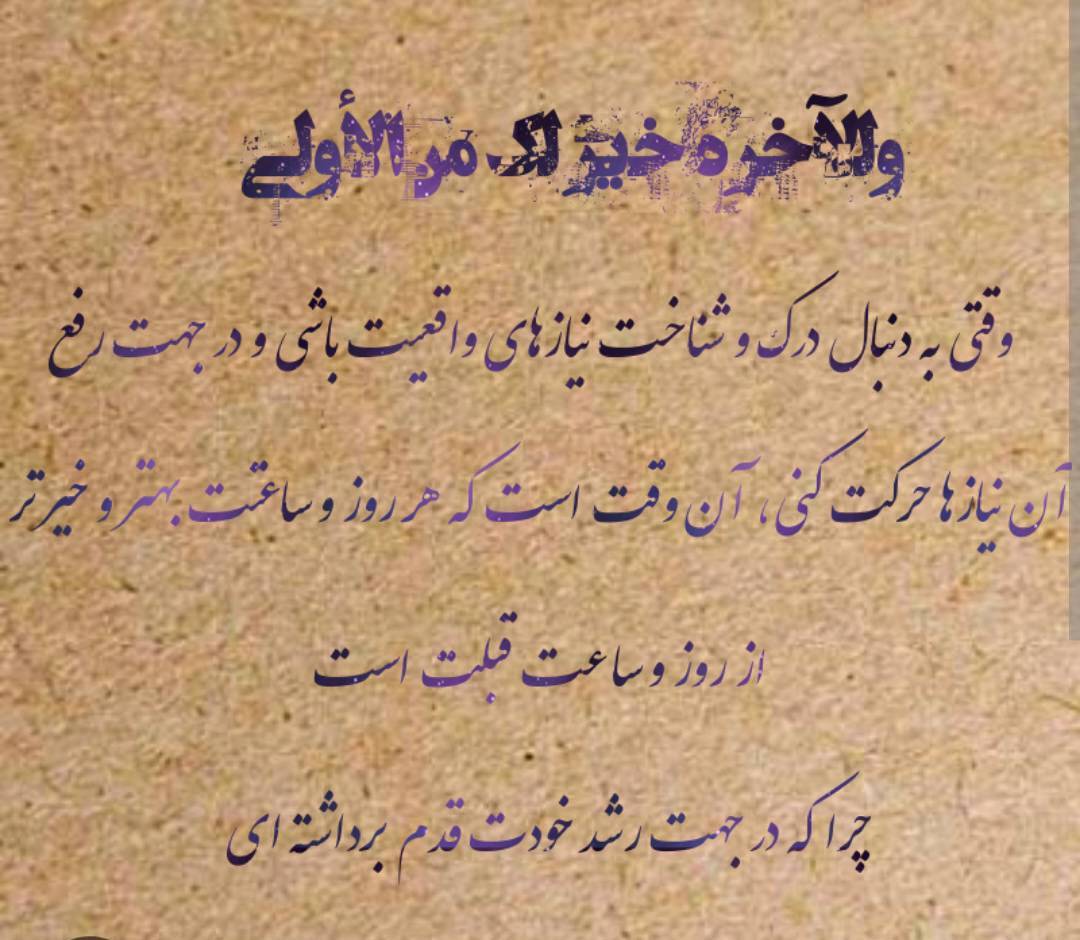 وللآخره خیر لک من الأولی
وقتی به دنبال درک و شناخت نیازهای واقعیت باشی و در جهت رفع
آن نیازها حرکت کنی، آن وقت است که هر روز و ساعتت بهتر و خیرتر
از روز و ساعت قبلت است
چرا که در جهت رشد خودت قدم برداشته ای